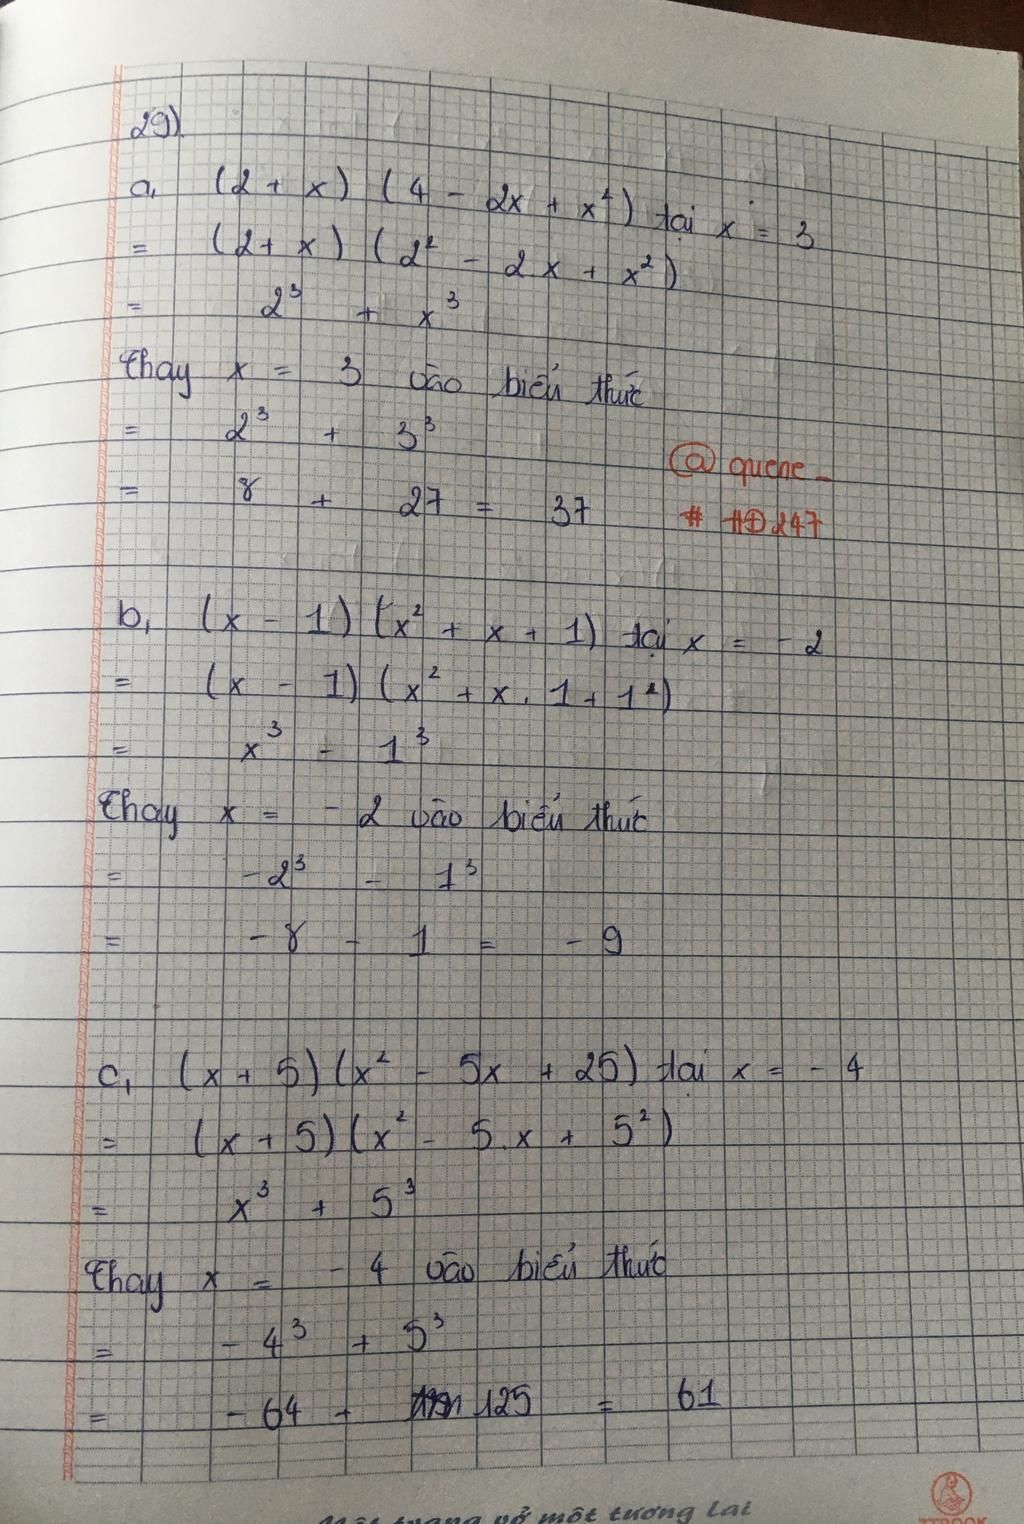 29)
a, (2 + x) (4 - 2x + x²) tại x = 3
= (2 + x) (2² - 2x + x²)
= 2³ + x³
Thay x = 3 vào biểu thức
= 2³ + 3³
= 8 + 27 = 37
@ quene_
# HĐ247
b, (x - 1) (x² + x + 1) tại x = -2
= (x - 1) (x² + x . 1 + 1²)
= x³ - 1³
Thay x = -2 vào biểu thức
= -2³ - 1³
= -8 - 1 = -9
c, (x + 5) (x² - 5x + 25) tại x = -4
= (x + 5) (x² - 5.x + 5²)
= x³ + 5³
Thay x = -4 vào biểu thức
= -4³ + 5³
= -64 + 125 = 61
một tương lai